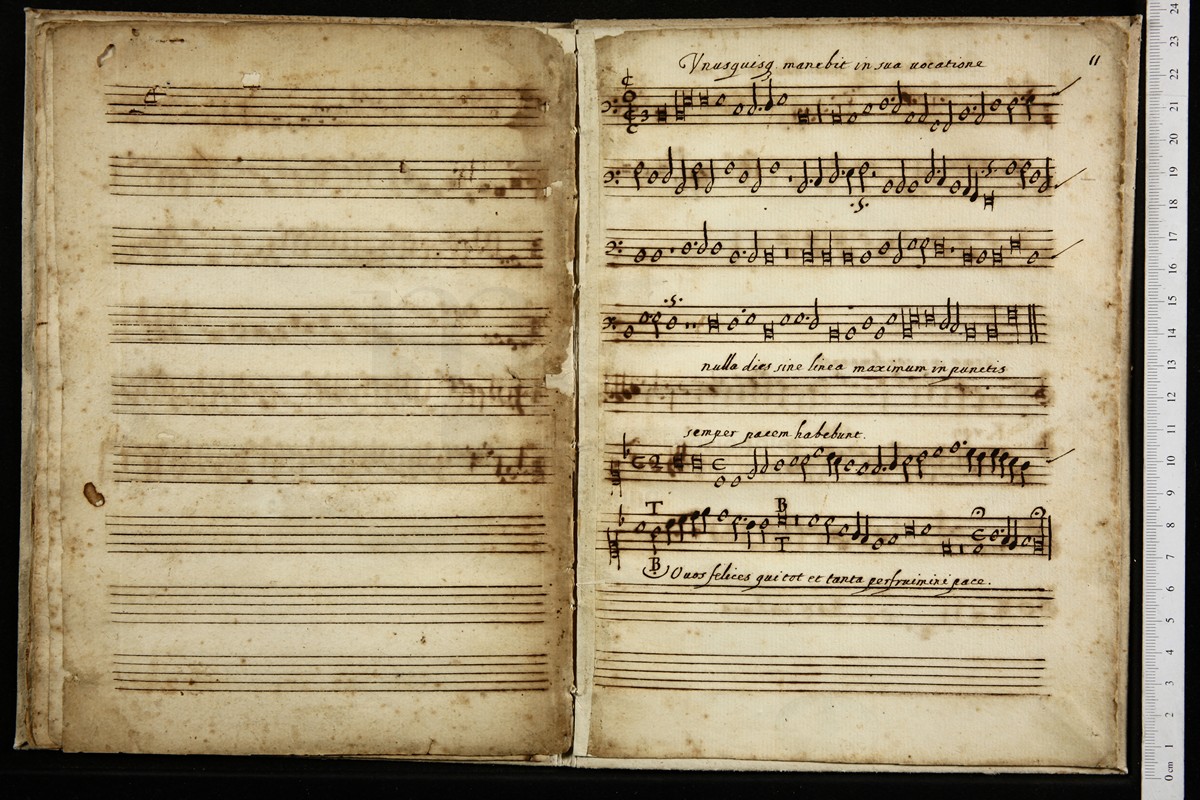 Vnusquisq manebit in sua uocatione
11
nulla dies sine linea maximum in punctis
semper pacem habebunt.
T B
T
B
O uos felices qui tot et tanta perfruimini pace.
0 cm 1 2 3 4 5 6 7 8 9 10 11 12 13 14 15 16 17 18 19 20 21 22 23 24